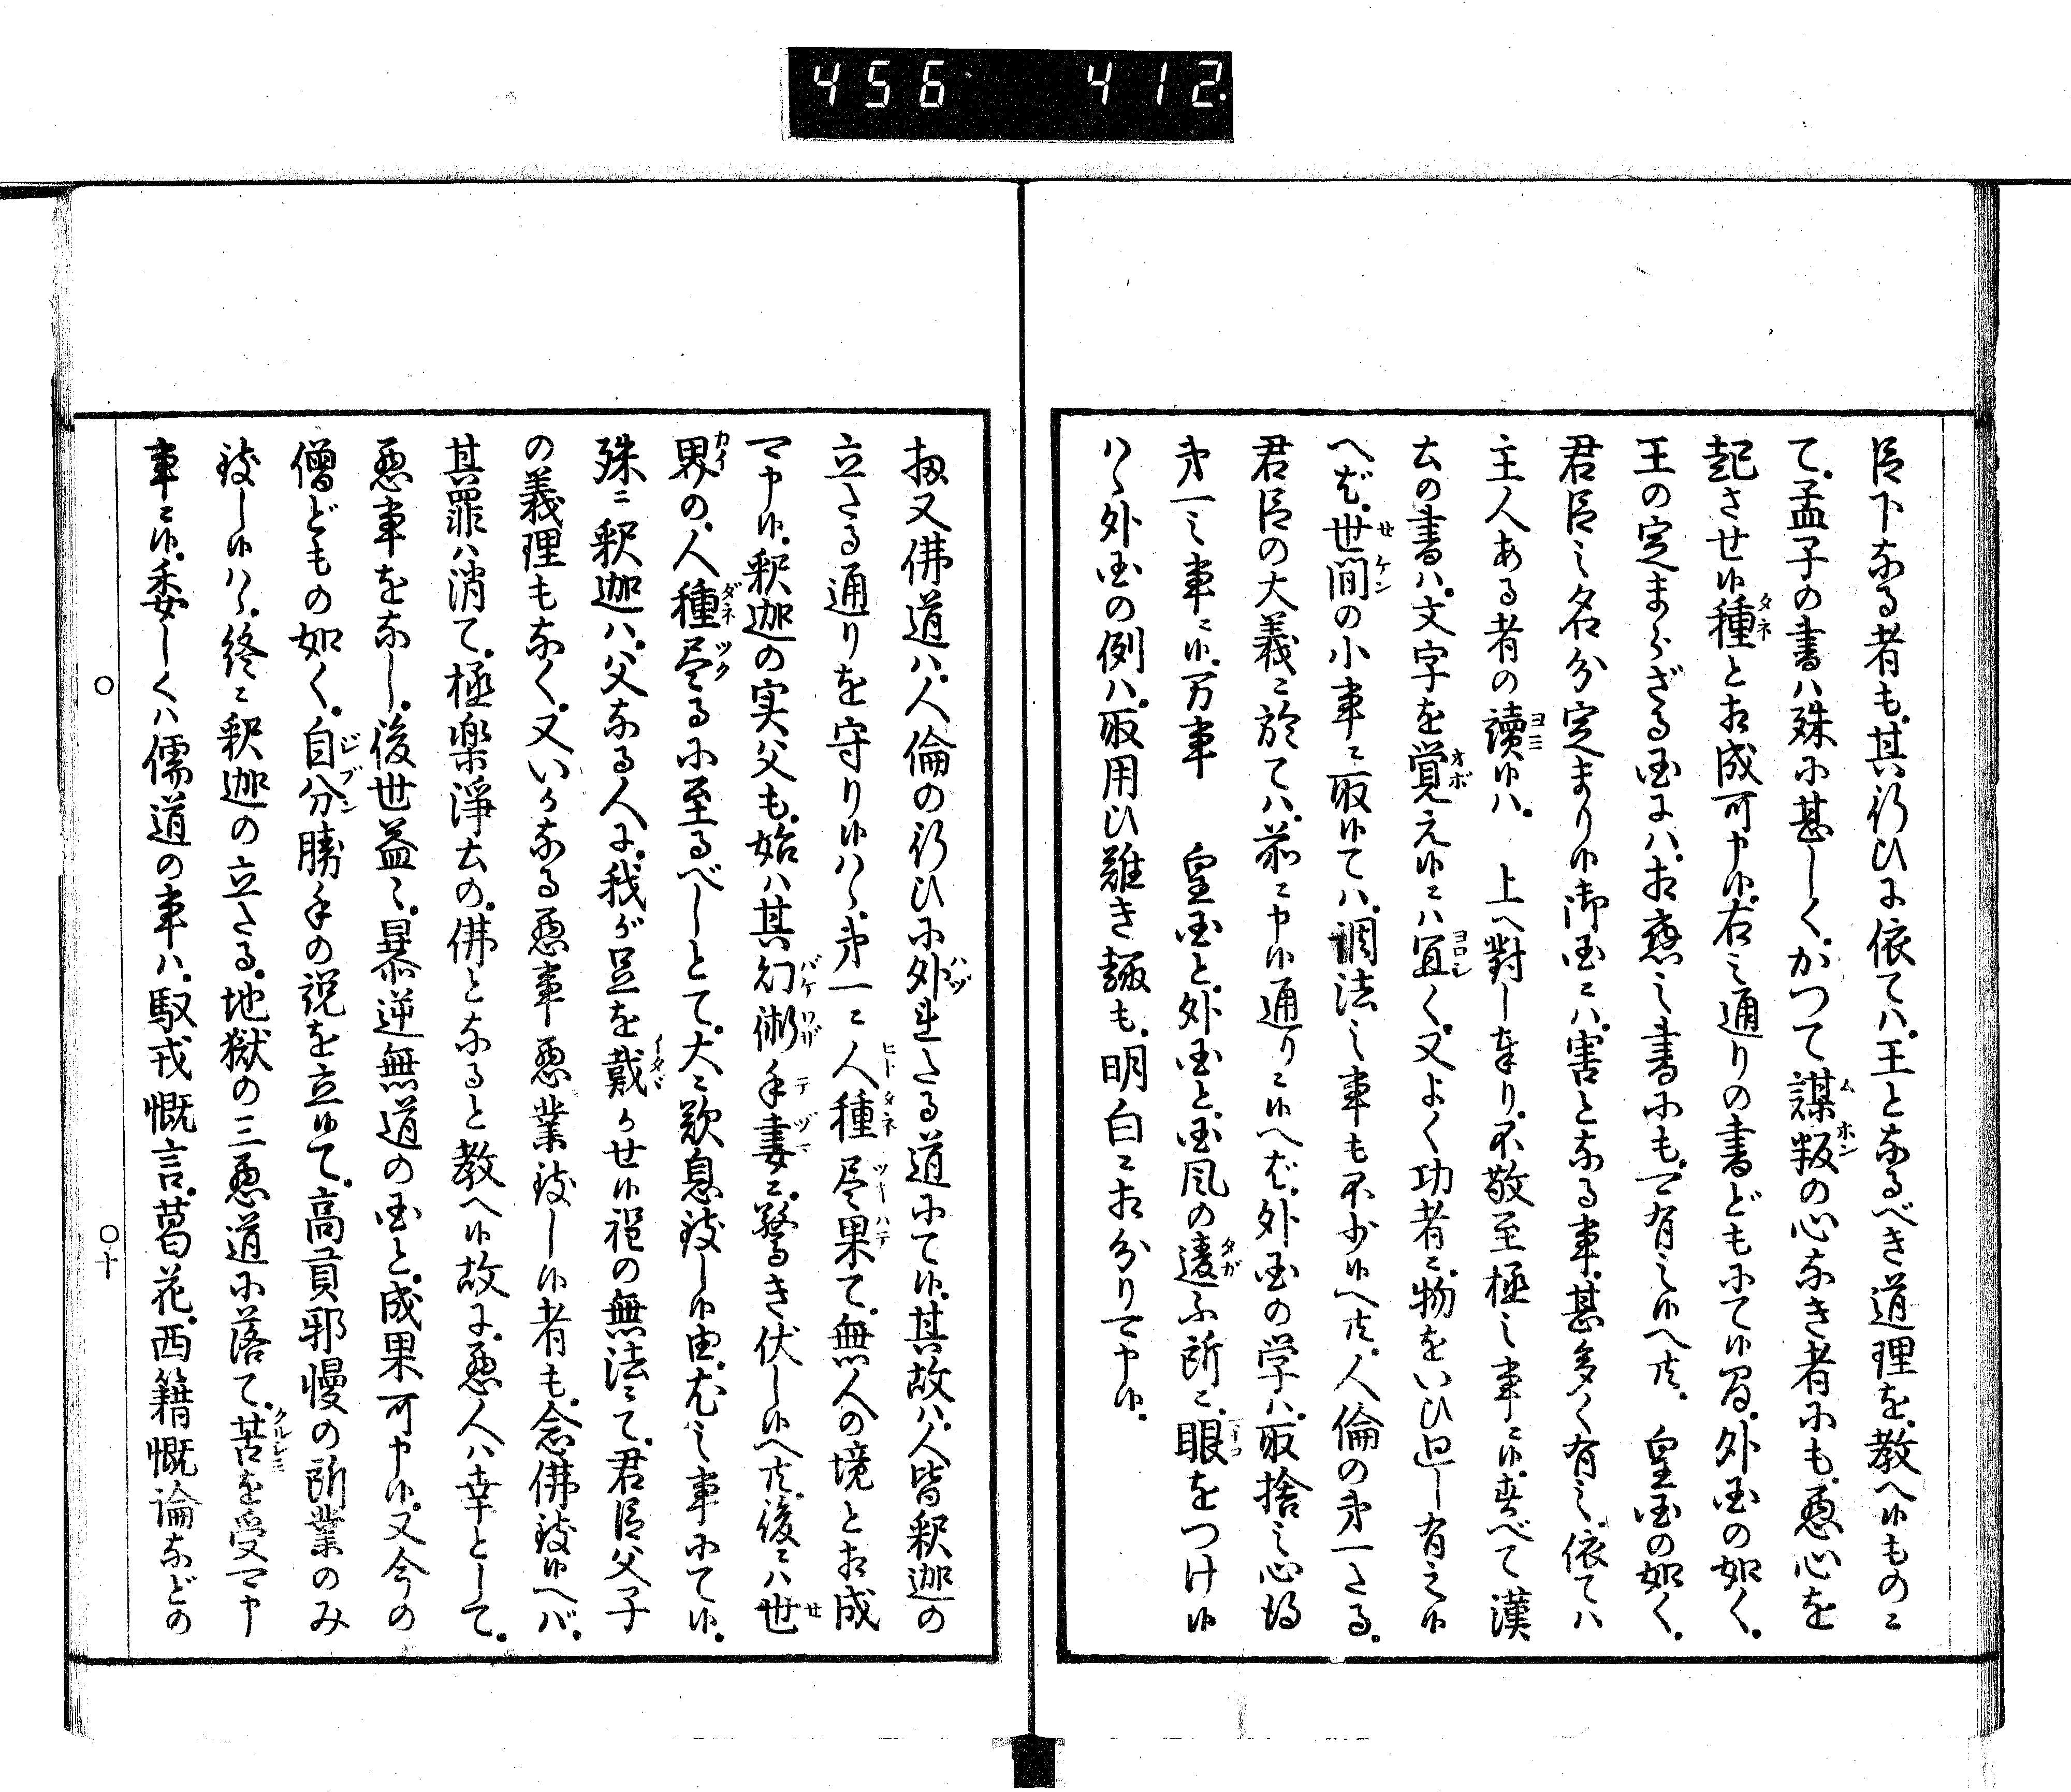 456 412.
臣下なる者も、其行ひに依てハ、王となるべき道理を、教へ候ものニ
て、孟子の書ハ殊に甚しく、かつて謀叛の心なき者にも、悪心を
起させ候種と相成可申候、右之通りの書どもにて候間、外国の如く、
王の定まらざる国にハ、相應之書にも、可有之候へ共、皇国の如く、
君臣之名分定まり候御国ニハ、害となる事、甚多く有之、依てハ
主人ある者の讀候ハ、上へ對し奉り、不敬至極之事ニ候、都べて漢
土の書ハ、文字を覚え候ニハ宜く、又よく功者ニ、物をいひ廻し有之候
へば、世間の小事ニ取候てハ、調法之事も不少候へ共、人倫の第一たる、
君臣の大義ニ於てハ、前ニ申候通りニ候へば、外国の学ハ、取捨之心得
第一之事ニ候、万事　皇国と、外国と、国風の違ふ所ニ、眼をつけ候
ハヾ、外国の例ハ、取用ひ難き趣も、明白ニ相分り可申候、
扨又佛道ハ、人倫の行ひに外れたる道にて候、其故ハ、人皆釈迦の
立たる通りを守り候ハヾ、第一ニ人種尽果て、無人の境と相成
可申候、釈迦の実父も、始ハ其幻術手妻ニ、驚き伏し候へ共、後ニハ世
界の、人種尽るに至るべしとて、大ニ歎息致し候由、尤之事にて候、
殊ニ釈迦ハ、父なる人に、我が足を戴かせ候程の無法ニて、君臣父子
の義理もなく、又いかなる悪事悪業致し候者も、念佛致候へバ、
其罪ハ消て、極楽淨土の、佛となると教へ候故に、悪人ハ幸として、
悪事をなし、後世益々、暴逆無道の国と、成果可申候、又今の
僧どもの如く、自分勝手の説を立候て、高貢邪慢の所業のみ
致し候ハヾ、終ニ釈迦の立たる、地獄の三悪道に落て、苦を受可申
事ニ候、委しくハ儒道の事ハ、馭戎慨言、葛花、西籍慨論などの
○　○十